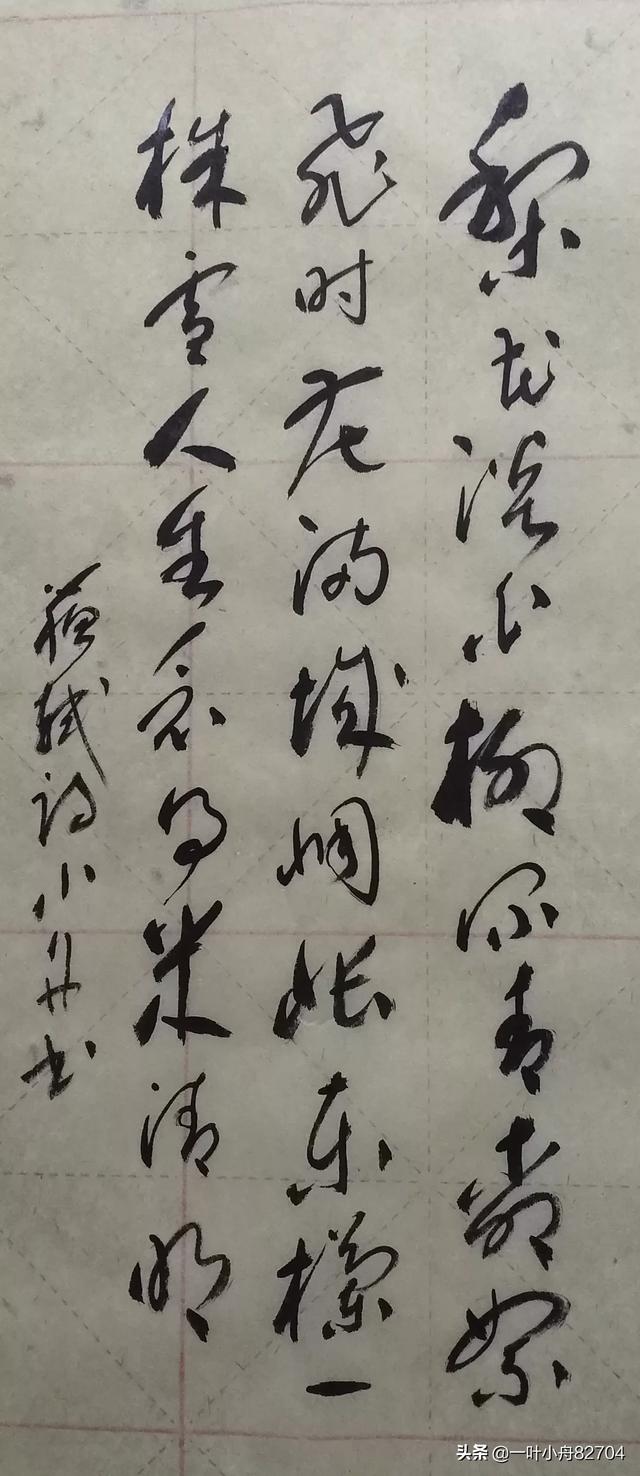 梨花淡白柳深青柳絮
飞时花满城惆怅东欄一
株雪人生看得几清明
蘇轼诗小舟书
头条 @一叶小舟82704